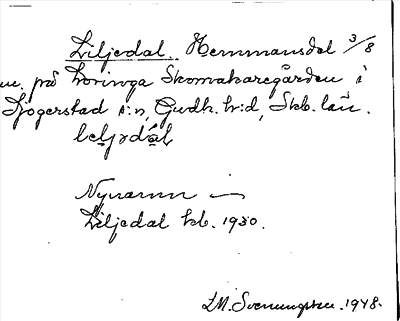 Liljedal. Hemmansdel 3/8
m. på Loringa Skomakaregården i
Sjogerstad s:n, Gudh. h:d, Skb. län.
Nynamn —
Liljedal kb. 1930.
L.M. Svenungsson. 1948.